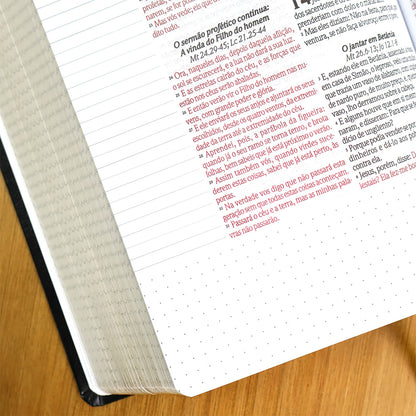 profeta,
narem, se for
Mas vós vede;
dito tudo.
O sermão profético continua:
A vinda do Filho do homem
Mt 24.29-45; Lc 21.25-44
Ora, naqueles dias, depois daquela aflição,
o sol se escurecerá, e a lua não dará a sua luz.
E as estrelas cairão do céu, e as forças que
estão nos céus serão abaladas.
E então verão vir o Filho do homem nas nu-
vens, com grande poder e glória.
E ele enviará os seus anjos e ajuntará os seus
escolhidos, desde os quatro ventos, da extremida-
de da terra até a extremidade do céu.
Aprendei, pois, a parábola da figueira:
quando já o seu ramo se torna tenro, e brota
folhas, bem sabeis que já está próximo o verão.
Assim também vós, quando virdes suce-
derem estas coisas, sabei que já está perto, às
portas.
Na verdade vos digo que não passará esta
geração sem que todas estas coisas aconteçam.
Passará o céu e a terra, mas as minhas pala-
vras não passarão.
14
dos sacerdotes e os
prenderiam com dolo e o
Mas eles diziam: Não na festa, para
ventura, se não faça alvoroço entre o
O jantar em Betânia
Mt 26.6-13; Jo 12.1-8
E, estando ele em Betânia,
em casa de Simão, o leproso, veio
que trazia um vaso de alabastro, com
de nardo puro, de muito preço, e
E alguns houve que em si
naram, e disseram: Para que
dício de unguento?
Porque podia vender-se
dinheiros e dá-lo aos
contra ela.
Jesus, porém, disse:
lestais? Ela fez-me